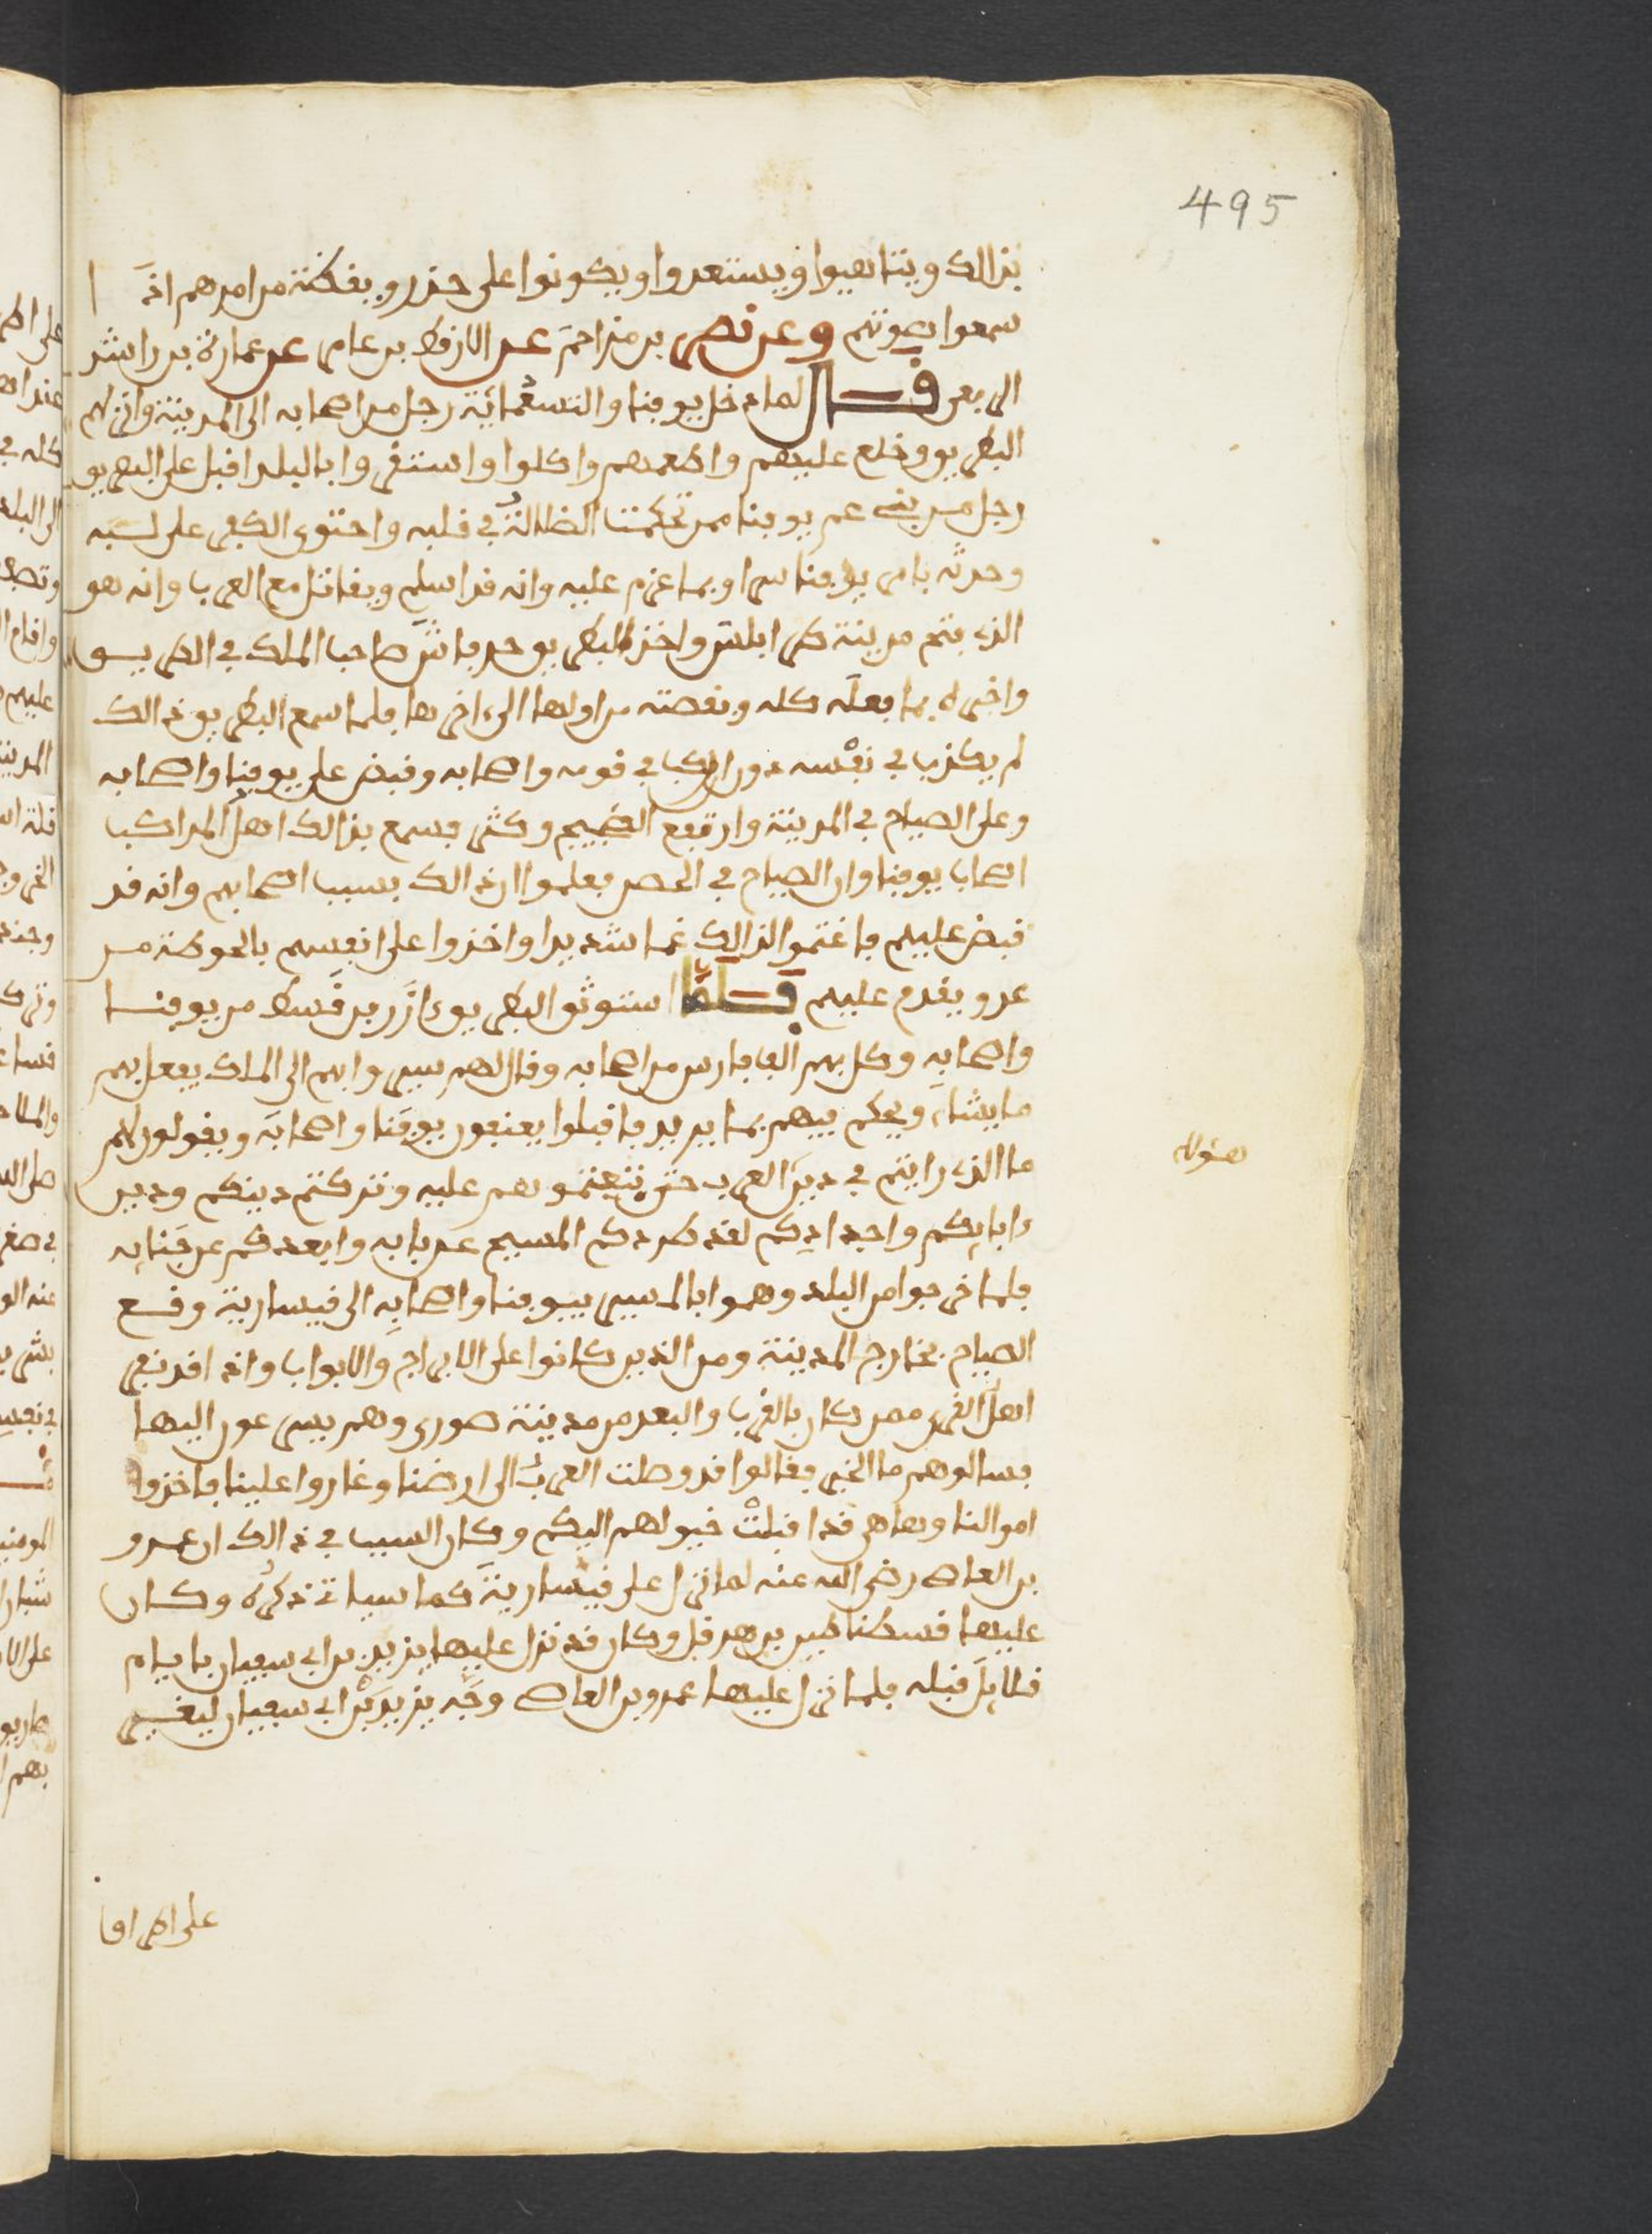 495
بذالك ويتاهبوا ويستعدوا ويكونوا على حذر ويقظة من امرهم اذا
سمعوا بصوتهم وعن نصر بن مزاحم عن الارقط بن عامر عن عمارة بن راشد
الربعي قال لما دخل يوقنا والتسعمائة رجل من اصحابه الى المدينة وانزلهم
البطريق وخلع عليهم واطعمهم واكلوا واستقروا بالبلد اقبل على البطريق
رجل من بني عم يوقنا ممن تحكمت الضلالة في قلبه واحتوى الكفر على لبه
وحدثه بامر يوقنا سرا وبما عزم عليه وانه قد اسلم ويقاتل مع العرب وانه هو
الذي فتح مدينة طرابلس واخذ البطريق جرفاش صاحب الملك في الطريق
واخبره بما فعله كله وبقصته من اولها الى اخرها فلما سمع البطريق ذالك
لم يكذب في نفسه دون ان ركب في قومه واصحابه وقبض على يوقنا واصحابه
وعلى الصياح في المدينة وارتفع الضجيج وكثر فسمع بذالك اهل المراكب
اصحاب يوقنا وان الصياح في الحصن فعلموا ان ذالك بسبب اصحابهم وانه قد
قبض عليهم فاغتموا لذالك غما شديدا واخذوا على انفسهم بالحوطة من
عدو يقدم عليهم قال فلما استوثق البطريق ازر بن قسط من يوقنا
واصحابه وكل بهم الف فارس من اصحابه وقال لهم سيروا بهم الى الملك يفعل بهم
ما يشاء ويحكم فيهم بما يريد فاقبلوا يعنفون يوقنا واصحابه ويقولون لهم
هؤلاء
ما الذي رايتم في دين العرب حتى تبعتموهم عليه وتركتم دينكم ودين
ءابائكم واجدادكم لقد طردكم المسيح عن بابه وابعدكم عن جنابه
فلما خرجوا من البلد وهموا بالمسير بيوقنا واصحابه الى قيسارية وقع
الصياح بخارج المدينة ومن الذين كانوا على الابراج والابواب واذا قد نفر
اهل القرى ممن كان بالقرب والبعد من مدينة صور وهم يسرعون اليها
فسالوهم ما الخبر فقالوا قد وصلت العرب الى ارضنا وغاروا علينا فاخذوا
اموالنا وها هي قد اقبلت خيولهم اليكم وكان السبب في ذالك ان عمرو
بن العاص رضي الله عنه لما نزل على قيسارية كما سياتي ذكره وكان
عليها قسطنطين بن هرقل وكان قد نزل عليها يزيد بن ابي سفيان بايام
قلائل قبله فلما نزل عليها عمرو بن العاص وجه يزيد بن ابي سفيان ليغير
على اطرافها